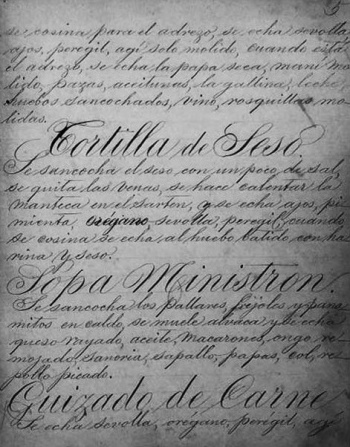 5
se cosina para el adrezo, se echa sevolla,
ajos, peregil, agi solo molido, cuando está
el adrezo, se echa la papa seca, mani mo
lido, pazas, aceitunas, la gallina, leche,
huebos sancochados, vino, rosquillas mo-
lidas.
Tortilla de Seso
Se sancocha el seso con un poco de sal,
se quita las venas, se hace calentar la
manteca en el sarten, y se echa ajos, pi
mienta, oregano, sevolla, peregil, cuando
se cosina se echa al huebo batido con ha
rina y seso.
Sopa Ministron.
Se sancocha los pallares, frejoles y pana
mitos en caldo, se muele alvaca y se echa
queso rayado, aceite, macarones, ongo re
mojado, sanoria, sapallo, papas, col, re
pollo picado.
Guizado de Carne
Se echa sevolla, orégano, perégil, agi